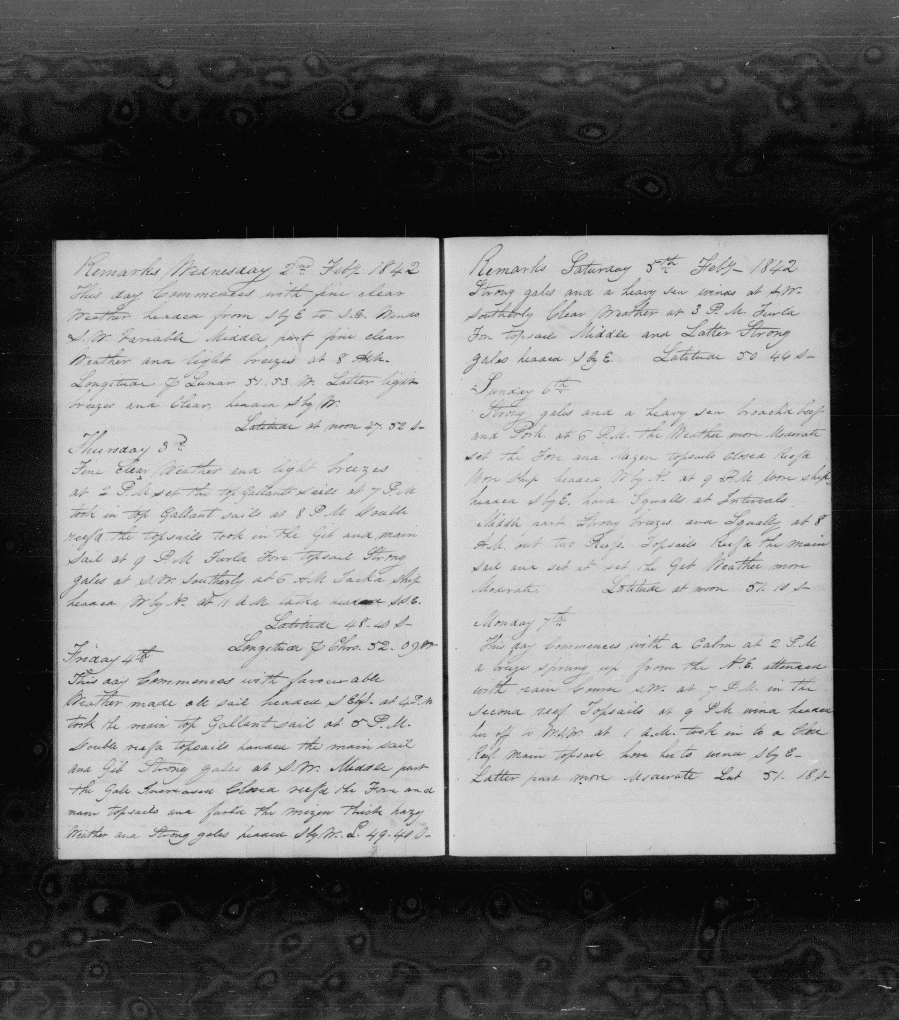 Remarks Wednesday 2nd Feby 1842
This day Commences with fine clear
Weather headed from S by E to S.E. Winds
S.W. Variable Middle part fine clear
Weather and light breezes at 8 A.M.
Longitude p Lunar 51.53 W. Latter light
breezes and Clear, headed S by W.
Latitude at noon 47.52 S-
Thursday 3d
Fine Clear Weather and light breezes
at 2 P.M set the top Gallant sails at 7 P.M
took in top Gallant sails at 8 P.M Double
reefd the topsails took in the Gib and main
sail at 9 P.M Furld Fore topsail Strong
gales at S.W. Southerly at 6 A.M Tackd Ship
headed W by N. at 11 A.M tackd headed S.S.E.
Latitude 48-40 S-
Longitude p Chro. 52.09 W
Friday 4th
This day Commences with favourable
Weather made all sail headed at 4 P.M
took the main top Gallant sail at 5 P.M.
Double reefd topsails handed the main sail
and Gib Strong gales at S.W. Middle part
the Gale Increased Closed reefd the Fore and
main topsails and furld the mizen thick hazy
Weather and Strong gales headed S by W. L. 49-40 S-
Remarks Saturday 5th Feby- 1842
Strong gales and a heavy sea winds at S.W-
Southerly Clear Weather at 3 P.M. Furld
Fore topsail Middle and Latter Strong
gales headed S by E. Latitude 50 46 S-
Sunday 6th
Strong gales and a heavy sea broachd beef
and Pork at 6 P.M. the Weather more Moderate
set the Fore and Mizen topsails Closed Reefd
Wore Ship headed W by N. at 9 P.M Wore ship
headed S by E. hard Squalls at Intervals
Middle part Strong breezes and Squally at 8
A.M. out two Reefs. Topsails Reefd the main
sail and set it set the Gib Weather more
Moderate Latitude at noon 51.10 S-
Monday 7th
This day Commences with a Calm at 2 P.M
a breeze sprung up from the N.E. attended
with rain Course S.W. at 7 P.M. in the
second reef Topsails at 9 P.M wind headed
her off to W.S.W. at 1 A.M. took in to a Close
Reef main topsail hove her to under S by E-
Latter part more Moderate Lat 51. 18 S-